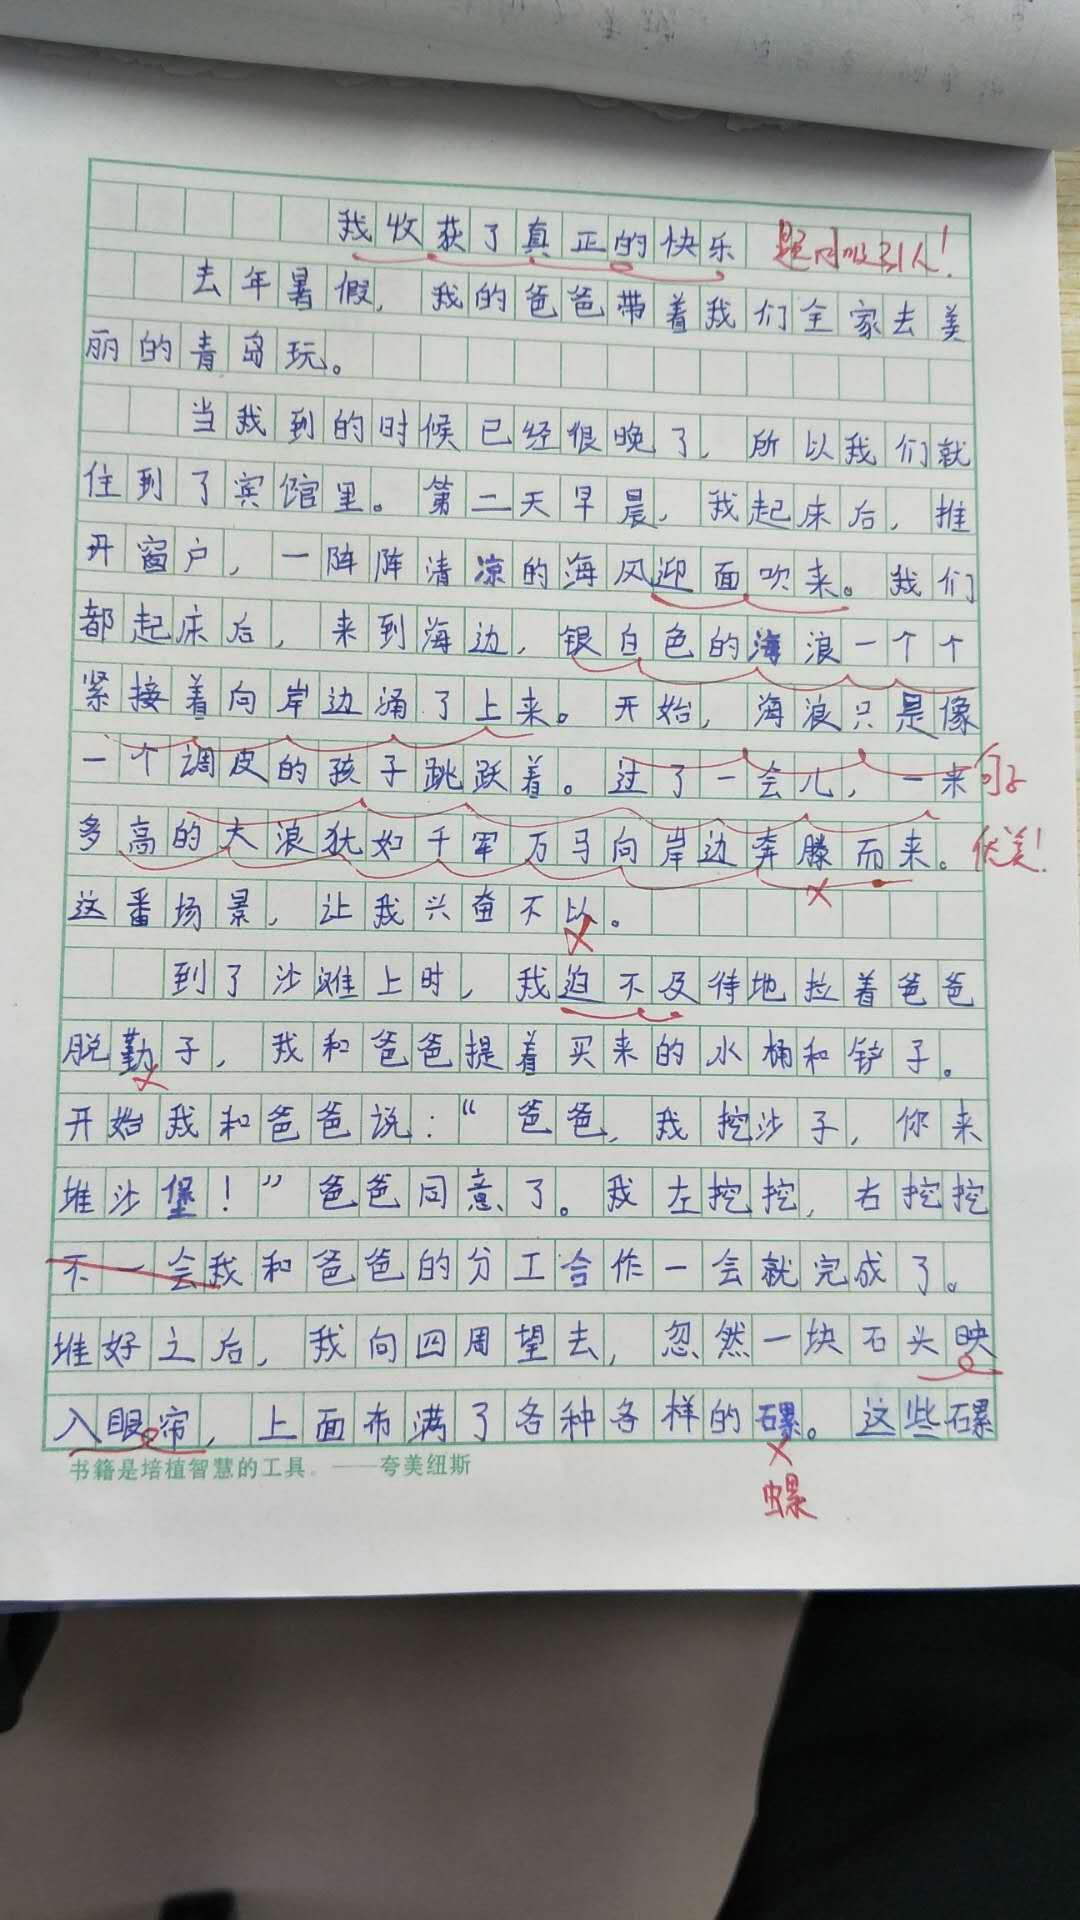 我收获了真正的快乐 题目吸引人！
去年暑假，我的爸爸带着我们全家去美
丽的青岛玩。
当我到的时候已经很晚了，所以我们就
住到了宾馆里。第二天早晨，我起床后，推
开窗户，一阵阵清凉的海风迎面吹来。我们
都起床后，来到海边，银白色的海浪一个个
紧接着向岸边涌了上来。开始，海浪只是像
一个调皮的孩子跳跃着。过了一会儿，一米 句子
多高的大浪犹如千军万马向岸边奔滕而来。 优美！
这番场景，让我兴奋不以。
到了沙滩上时，我迫不及待地拉着爸爸
脱勤子，我和爸爸提着买来的水桶和铲子。
开始我和爸爸说：“爸爸，我挖沙子，你来
堆沙堡！”爸爸同意了。我左挖挖，右挖挖
不一会我和爸爸的分工合作一会就完成了。
堆好之后，我向四周望去，忽然一块石头映
入眼帘，上面布满了各种各样的磥。这些磥
书籍是培植智慧的工具。——夸美纽斯
螺